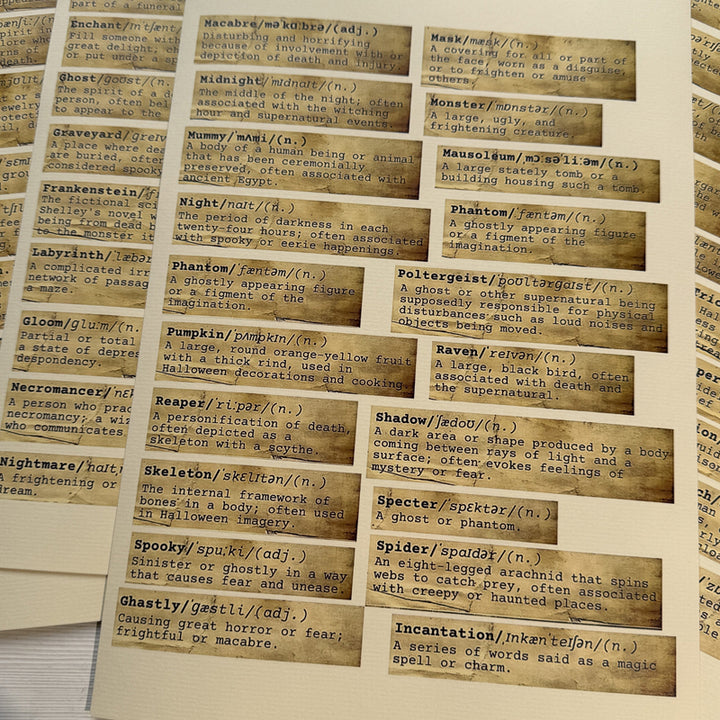 part of a funeral
Enchant/
Fill someone with
great delight;
or put under
Ghost/ɡoʊst/(n.)
The spirit of a d
person, often bel
to appear to the
Graveyard/
A place where dea
are buried, often
considered spooky
Frankenstein/
The fictional sci
Shelley's novel w
being from dead b
to the monster it
Labyrinth/
A complicated irr
network of passag
a maze.
Gloom/ɡluːm/(n.
Partial or total
a state of depres
despondency.
Necromancer/
A person who prac
necromancy; a wiz
who communicates
Nightmare/
A frightening or
dream.
Macabre/məˈkɑːbrə/(adj.)
Disturbing and horrifying
because of involvement with or
depiction of death and injury.
Midnight/ˈmɪdnaɪt/(n.)
The middle of the night; often
associated with the witching
hour and supernatural events.
Mummy/ˈmʌmi/(n.)
A body of a human being or animal
that has been ceremonially
preserved, often associated with
ancient Egypt.
Night/naɪt/(n.)
The period of darkness in each
twenty-four hours; often associated
with spooky or eerie happenings.
Phantom/ˈfæntəm/(n.)
A ghostly appearing figure
or a figment of the
imagination.
Pumpkin/ˈpʌmpkɪn/(n.)
A large, round orange-yellow fruit
with a thick rind, used in
Halloween decorations and cooking.
Reaper/ˈriːpər/(n.)
A personification of death,
often depicted as a
skeleton with a scythe.
Skeleton/ˈskɛlɪtən/(n.)
The internal framework of
bones in a body; often used
in Halloween imagery.
Spooky/ˈspuːki/(adj.)
Sinister or ghostly in a way
that causes fear and unease.
Ghastly/ˈɡæstli/(adj.)
Causing great horror or fear;
frightful or macabre.
Mask/mæsk/(n.)
A covering for all or part of
the face, worn as a disguise,
or to frighten or amuse
others.
Monster/ˈmɒnstər/(n.)
A large, ugly, and
frightening creature.
Mausoleum/ˌmɔːsəˈliːəm/(n.)
A large stately tomb or a
building housing such a tomb.
Phantom/ˈfæntəm/(n.)
A ghostly appearing figure
or a figment of the
imagination.
Poltergeist/ˈpoʊltərɡaɪst/(n.)
A ghost or other supernatural being
supposedly responsible for physical
disturbances such as loud noises and
objects being moved.
Raven/ˈreɪvən/(n.)
A large, black bird, often
associated with death and
the supernatural.
Shadow/ˈʃædoʊ/(n.)
A dark area or shape produced by a body
coming between rays of light and a
surface; often evokes feelings of
mystery or fear.
Specter/ˈspɛktər/(n.)
A ghost or phantom.
Spider/ˈspaɪdər/(n.)
An eight-legged arachnid that spins
webs to catch prey, often associated
with creepy or haunted places.
Incantation/ˌɪnkænˈteɪʃən/(n.)
A series of words said as a magic
spell or charm.